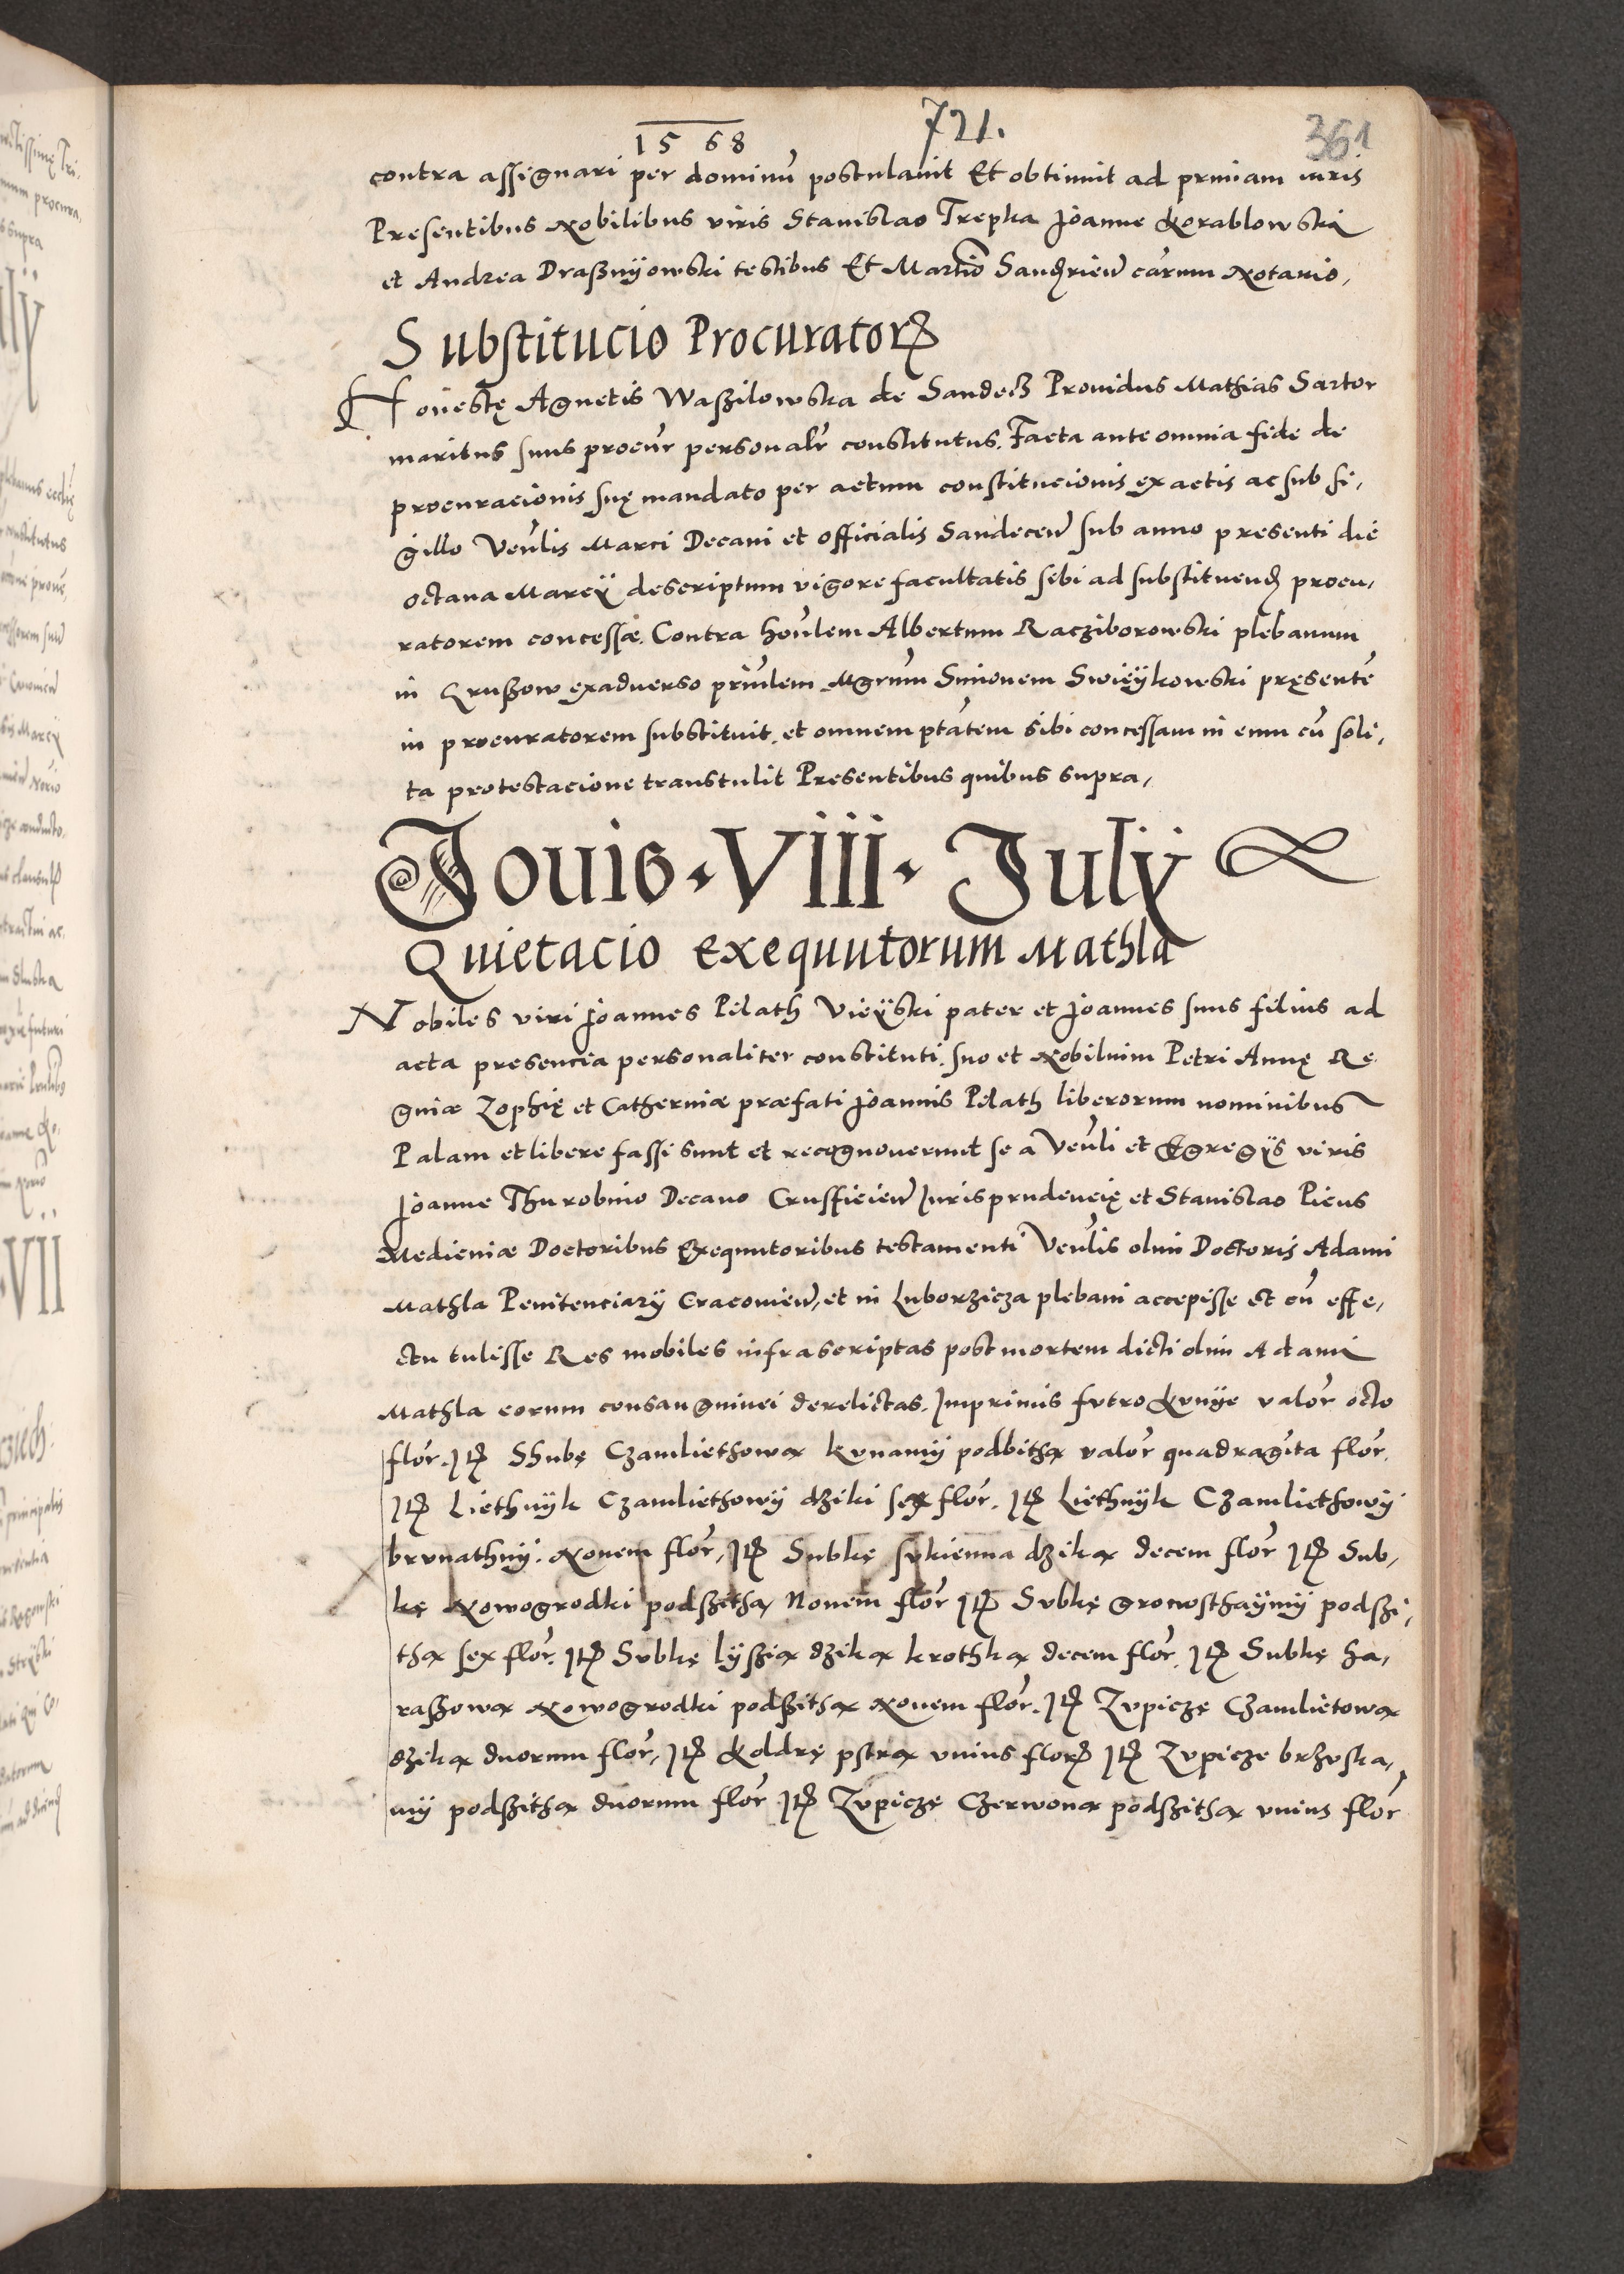 1568 721. 361
contra assignari per dominū postulauit Et obtinuit ad primam iuris
Presentibus Nobilibus viris Stanislao Trepka Joanne Korablowski
et Andrea Draßnÿowski testibus Et Martino carum Notario,
Substitucio Procurator
Honestę Agnetis Waszilowska de Sandecz Prouidus Mathias Sartor
maritus suus procur personalr constitutus. Facta ante omnia fide de
procuracionis suę mandato per actum constitucionis ex actis ac sub si,
gillo Venlis Marci Decani et officialis Sandecen sub anno presenti die
octaua Marcÿ descriptum vigore facultatis sibi ad substituend procu,
ratorem concessæ. Contra honlem Albertum Racziborowski plebanum
in Krussow exaduerso priulem Mgrum Simonem Swieÿkowski pręsentē
in procuratorem substituit. et omnem ptatem sibi concessam in eum cū soli,
ta protestacione transtulit Presentibus quibus supra,
Jouis · VIII · Julÿ
Quietacio Exequutorum Mathla
Nobiles viri Joannes Pilath Vieÿski pater et Joannes suus filius ad
acta presencia personaliter constituti. suo et Nobilium Petri Annę Re
ginæ Zophię et Catherinæ præfati Joannis Pilath liberorum nominibus
Palam et libere fassi sunt et recognouerunt se a Venli et Egregÿs viris
Joanne Thurobinio Decano Crusficien Jurisprudencię et Stanislao Picus
Medicinæ Doctoribus Exequutoribus testamenti Venlis olim Doctoris Adami
Mathla Penitenciarÿ Cracouien, et in Luborzicza plebani accepisse et cū effe,
ctu tulisse Res mobiles infrascriptas post mortem dicti olim Adami
Mathla eorum consanguinei derelictas. Imprimis futro Kunÿe valor octo
flor. Itē Shubę Czamliethową kunamÿ podbithą valor quadragīta flor.
Itē Liethnÿk Czamliethowÿ dziki sex flor. Itē Liethnÿk Czamliethowÿ
brunathnÿ. Nouem flor, Itē Subkę sukienna dziką decem flor Itē Sub,
kę Nowogrodki podszithą Nouem flor Itē Subkę growsthaÿmÿ podszi,
thą sex flor. Itē Subkę lÿszią dziką krothką decem flor. Itē Subkę ha,
raszową Nowogrodki podszithą Nouem flor. Itē Zupiczę Czamlietową
dziką duorum flor, Itē Koldrę pstrą vnius flor Itē Zupicze brzuska,
mÿ podszithą duorum flor Itē Zupiczę Czerwoną podszithą vnius flor